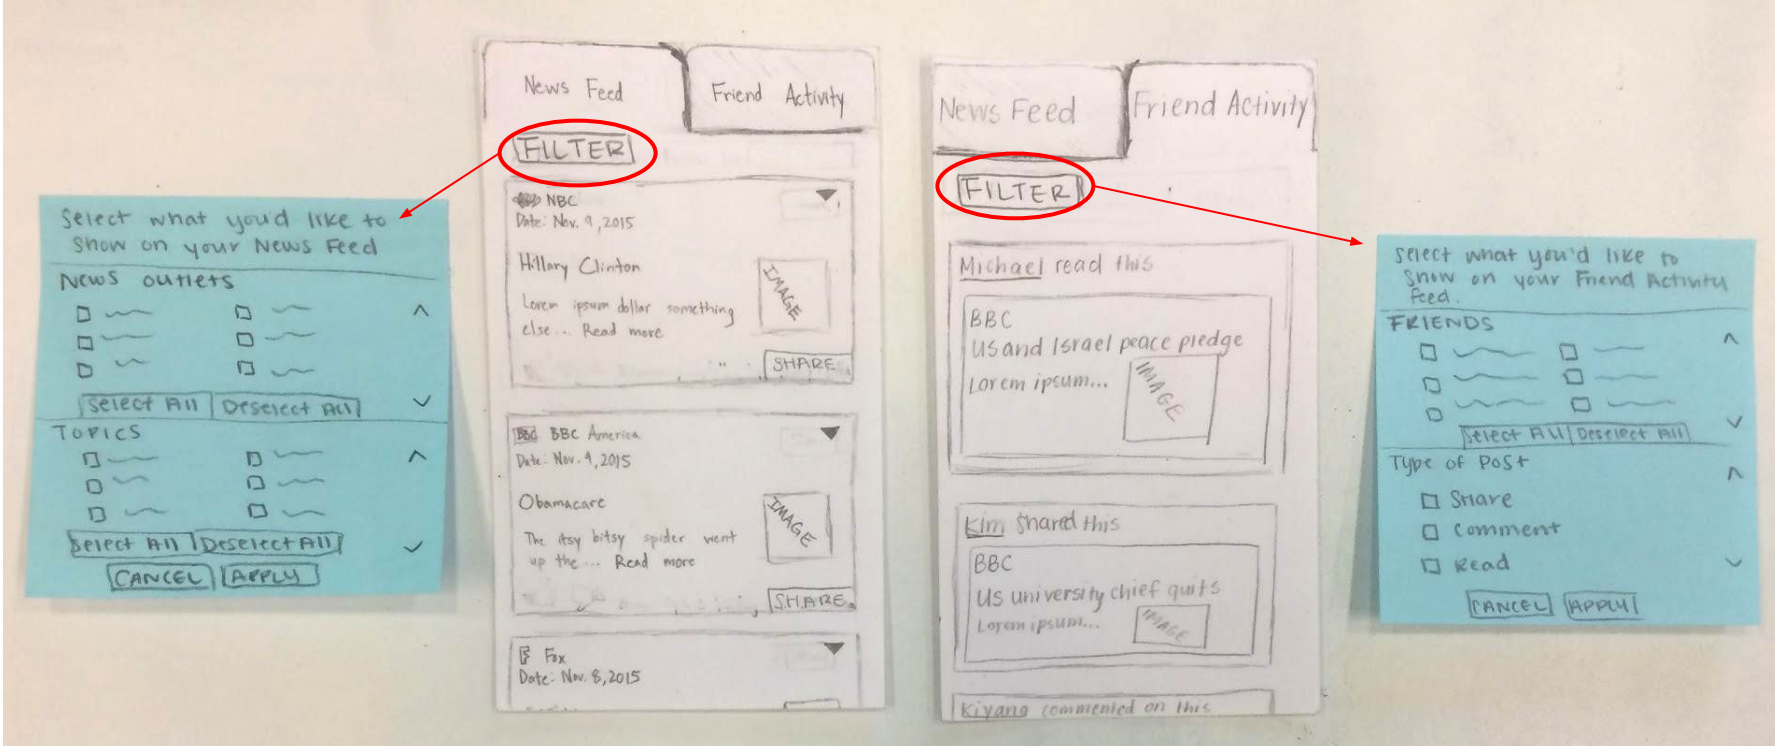 Select what you'd like to
Show on your News Feed
News outlets
Select All Deselect All
TOPICS
Select All Deselect All
CANCEL APPLY
News Feed Friend Activity
FILTER
NBC
Date: Nov. 9, 2015
Hillary Clinton
IMAGE
Lorem ipsum dollar something
else... Read more
SHARE
BBC BBC America
Date: Nov. 9, 2015
Obamacare
IMAGE
The itsy bitsy spider went
up the ... Read more
SHARE
F Fox
Date: Nov. 8, 2015
News Feed Friend Activity
FILTER
Michael read this
BBC
US and Israel peace pledge
Lorem ipsum...
IMAGE
Kim shared this
BBC
US university chief quits
Lorem ipsum...
IMAGE
Kiyang commented on this
Select what you'd like to
Show on your Friend Activity
Feed.
FRIENDS
Select All Deselect All
Type of Post
Share
Comment
Read
CANCEL APPLY